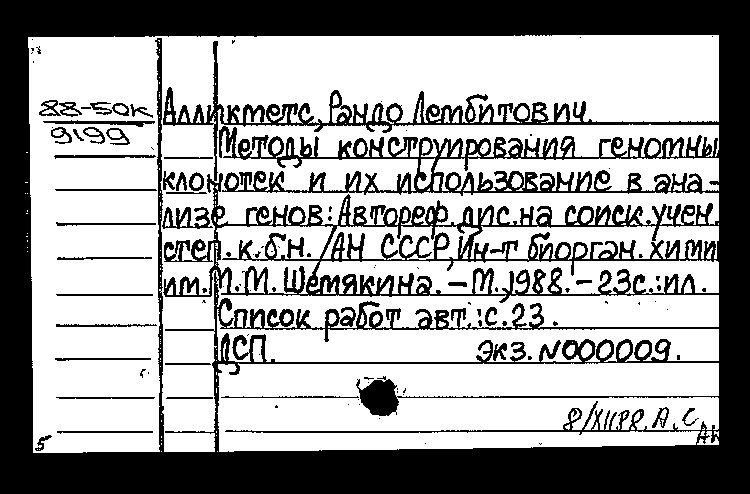 88-50к
9199
Алликметс, Рандо Лембитович.
Методы конструирования геномны
клонотек и их использование в ана-
лизе генов: Автореф. дис. на соиск. учен.
степ. к.б.н. /АН СССР, Ин-т биорган. хими
им. М.М. Шемякина. – М., 1988. – 23с.: ил.
Список работ авт.: с. 23.
ДСП. экз. N000009.
8/XII88. А.С.
АК
5